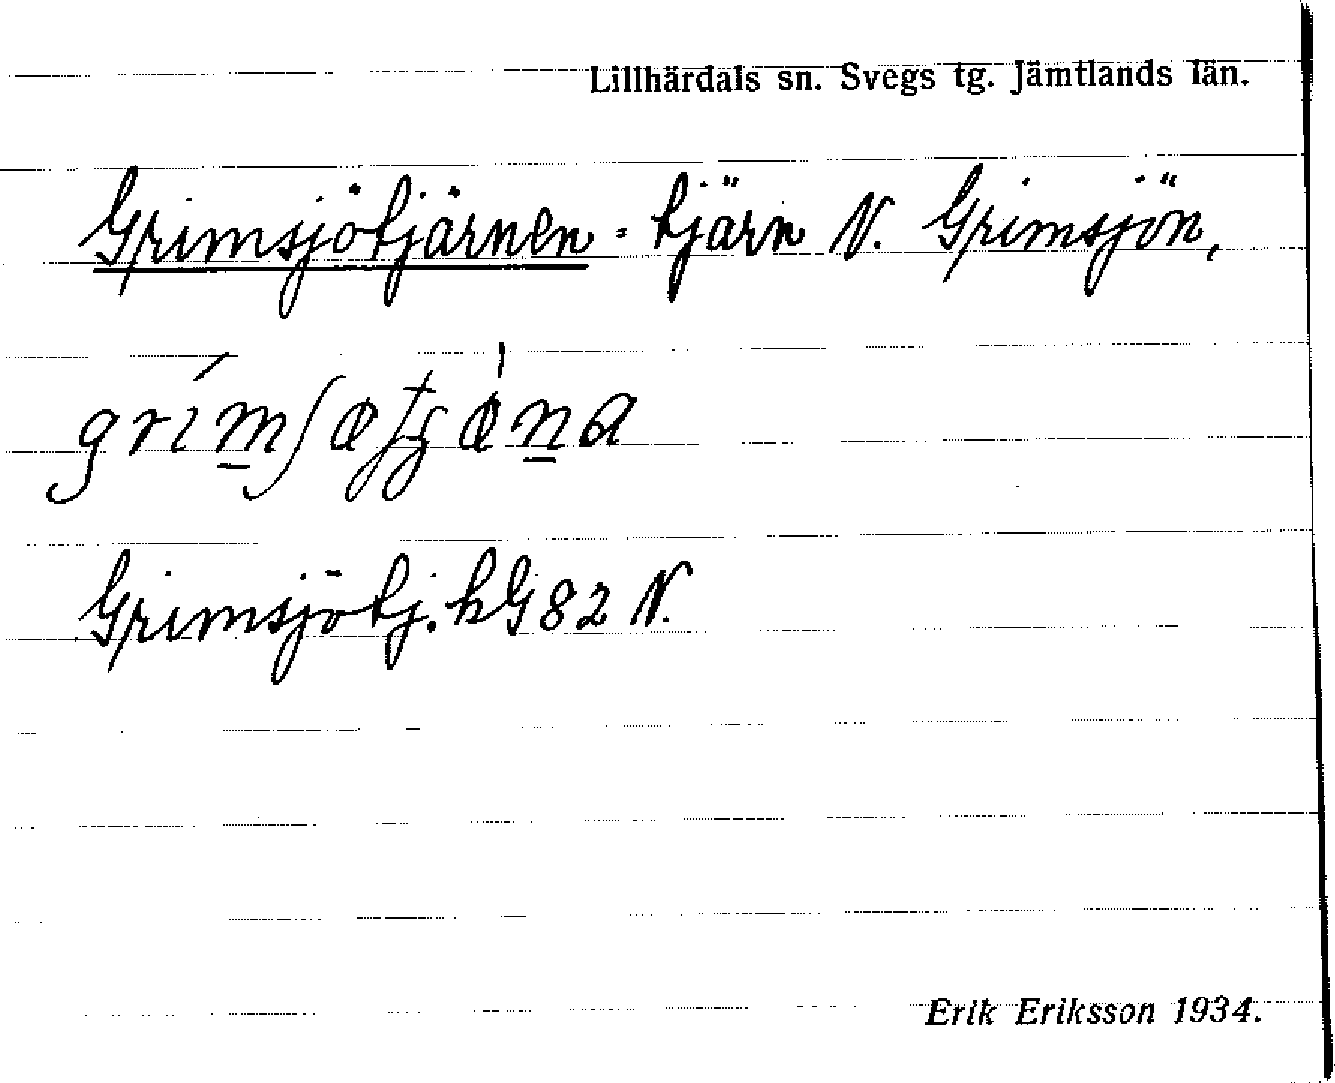 Lillhärdals sn. Svegs tg. Jämtlands län.
Grimsjötjärnen = tjärn N. Grimsjön,
Grimsjötj. kG82 N.
Erik Eriksson 1934.